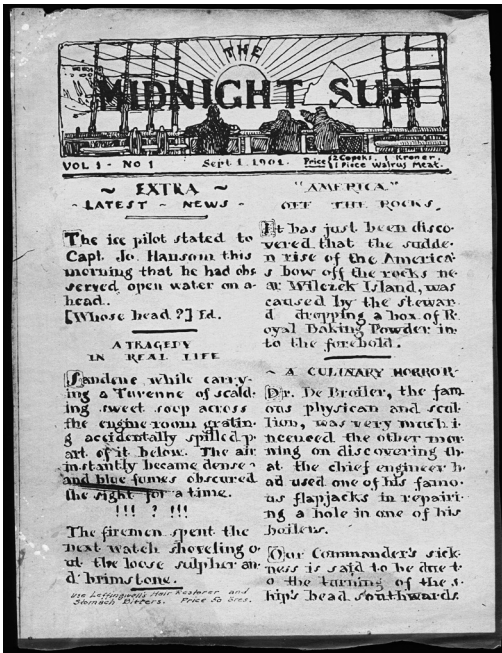 THE
MIDNIGHT SUN
VOL 1 - NO 1   Sept 1. 1901.   Price {2 Copeks, 1 Kroner,
1 Piece Walrus Meat.
~ EXTRA ~
- LATEST - NEWS -
The ice pilot stated to
Capt. Jo. Hansom this
morning that he had obs
served open water on a-
head..
[Whose head ?] Ed.
A TRAGEDY
IN REAL LIFE
Sandene while carry-
ing a Turenne of scald-
ing sweet soup across
the engine room gratin-
g accidentally spilled p-
art of it below. The air
instantly became dense -
and blue fumes obscured
the sight for a time.
!!! ? !!!
The firemen spent the
next watch shoveling o-
ut the loose sulpher an-
d brimstone.
Use Leffingwell's Hair Restorer and
Stomach Bitters. Price 50 Ores.
"AMERICA"
OFF THE ROCKS.
It has just been disco-
vered that the sudde-
n rise of the America'
s bow off the rocks ne-
ar Wilczek Island, was
caused by the stewar
d dropping a box of R-
oyal Baking Powder in-
to the forehold.
~ A CULINARY HORROR -
Dr. De Broiler, the fam
ous physican and scul-
lion, was very much i-
ncensed the other mor-
ning on discovering th-
at the chief engineer h-
ad used one of his famo-
us flapjacks in repairi-
ng a hole in one of his
boilers.
Our Commander's sick-
ness is said to be due t-
o the turning of the s-
hip's head southwards.